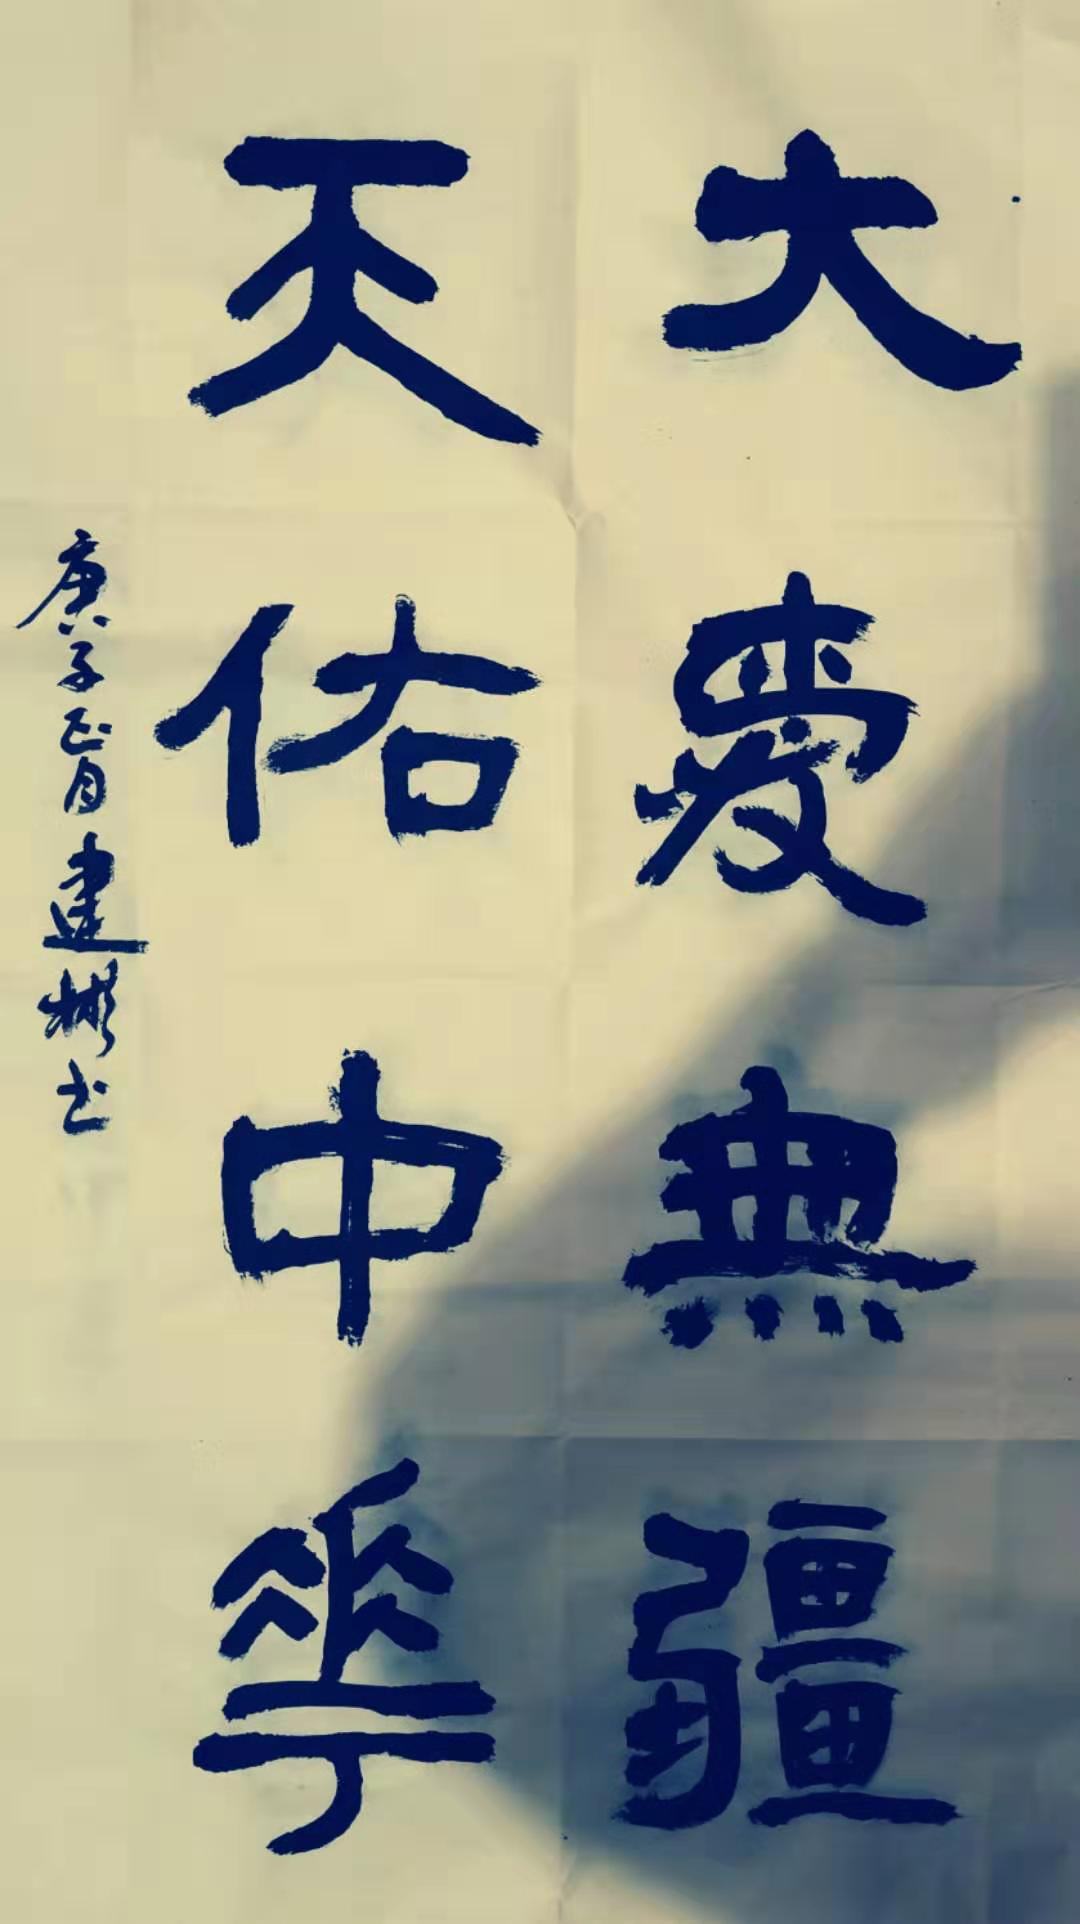 大愛無疆
天佑中華
庚子正月建彬书